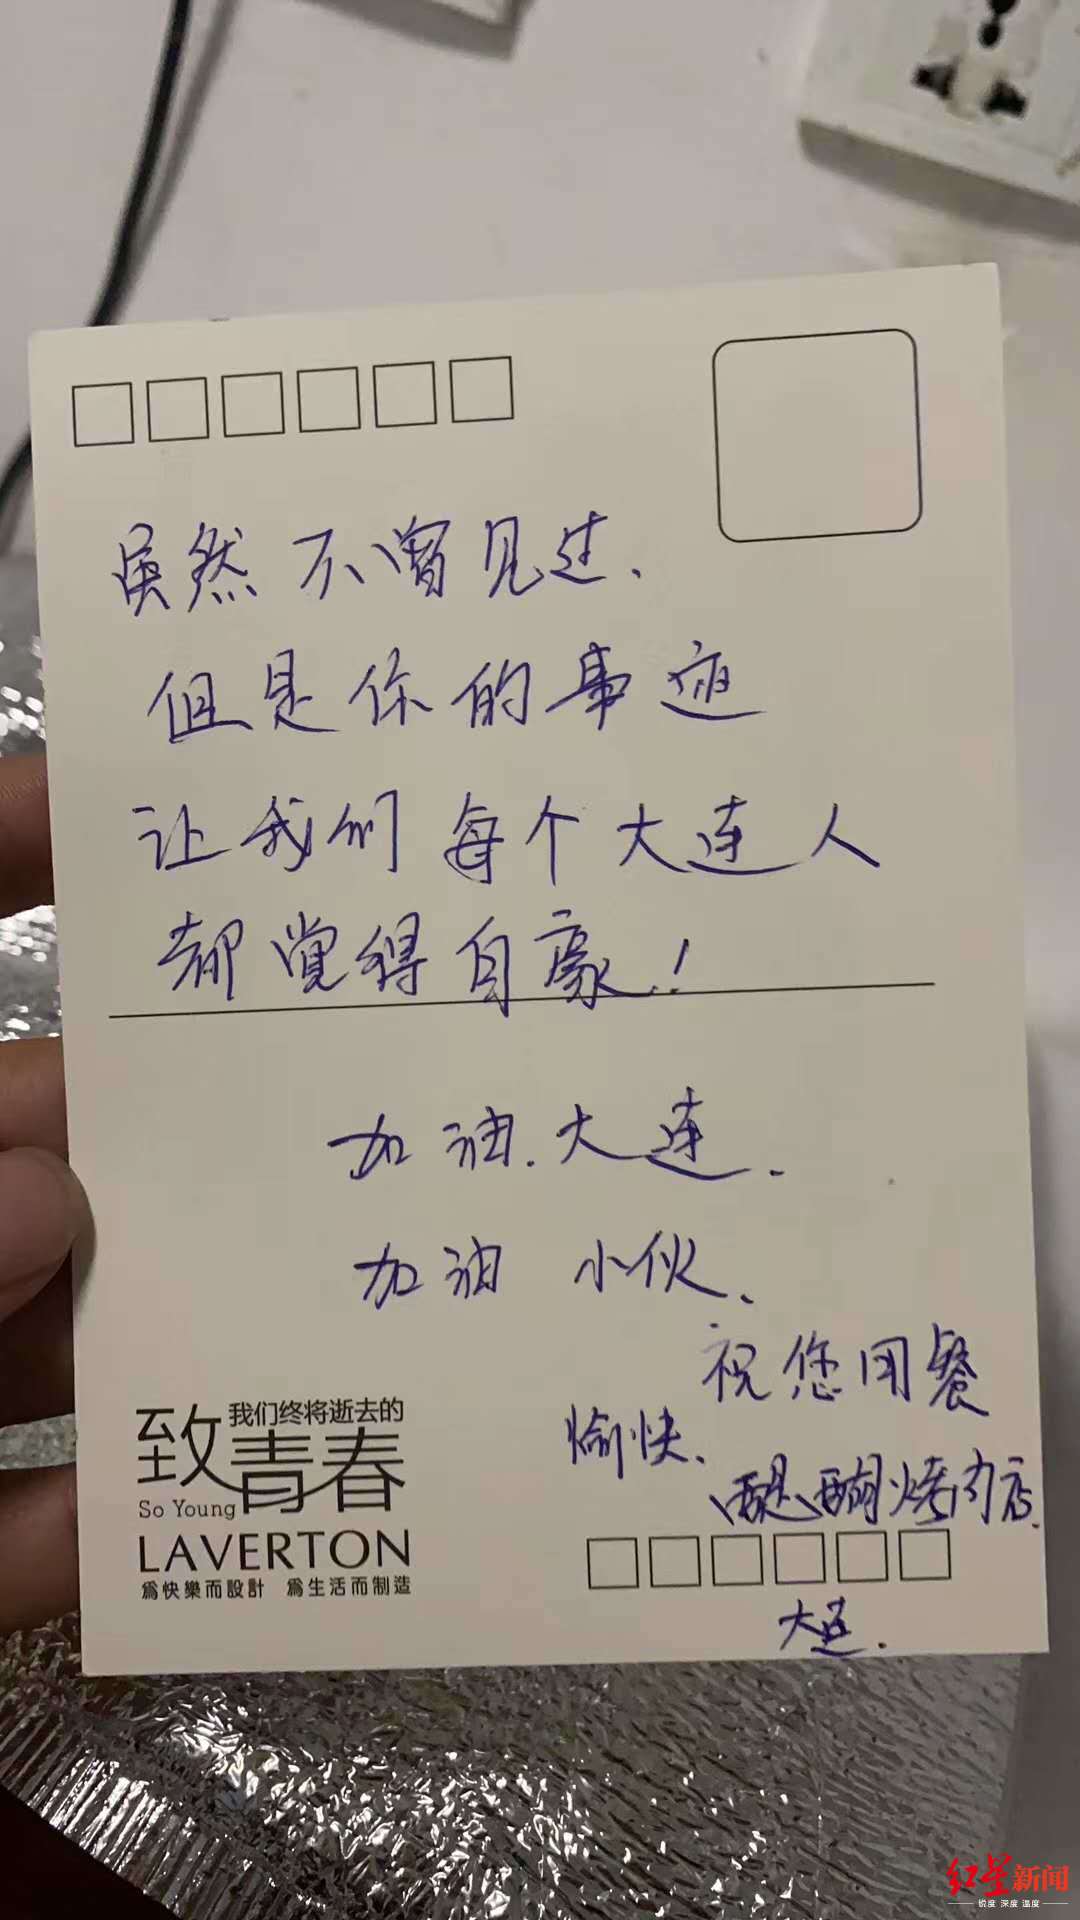 虽然不曾见过、
但是你的事迹
让我们每个大连人
都觉得自豪！
加油.大连.
加油 小伙、
祝您用餐
愉快、
醍醐烤肉店.
大连.
致青春
我们终将逝去的
So Young
LAVERTON
為快樂而設計 為生活而制造
红星新闻
锐度 深度 温度